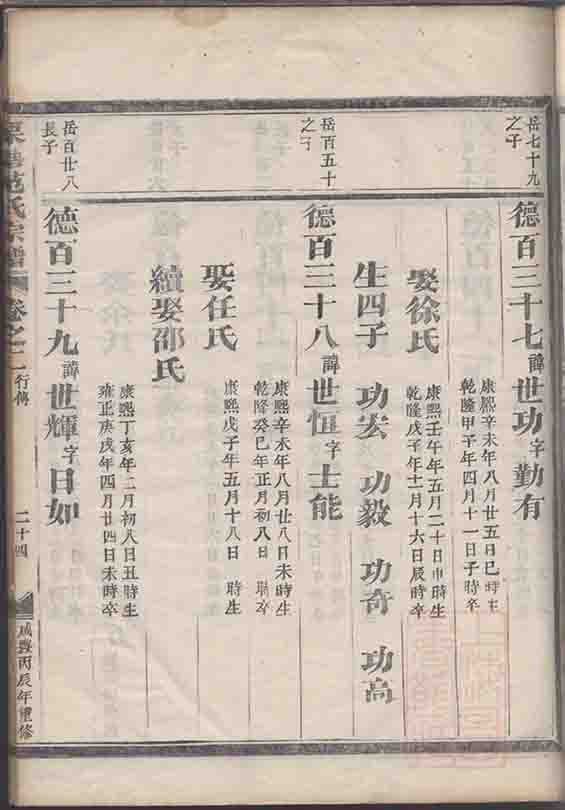 岳七十九
之子
德百三十七諱世功字勤有
康熙辛未年八月廿五日巳時生
乾隆甲子年四月十一日子時卒
娶徐氏
康熙壬午年五月二十日申時生
乾隆戊子年十二月十六日辰時卒
生四子 功宏 功毅 功奇 功高
岳百五十
之子
德百三十八諱世恒字士能
康熙辛未年八月廿八日未時生
乾隆癸巳年正月初八日 時卒
娶任氏
康熙戊子年五月十八日 時生
續娶邵氏
岳百廿八
長子
德百三十九諱世輝字日如
康熙丁亥年二月初八日丑時生
雍正庚戌年四月廿四日未時卒
范氏宗譜 卷之二 行傳 二十四 咸豐丙辰年重修